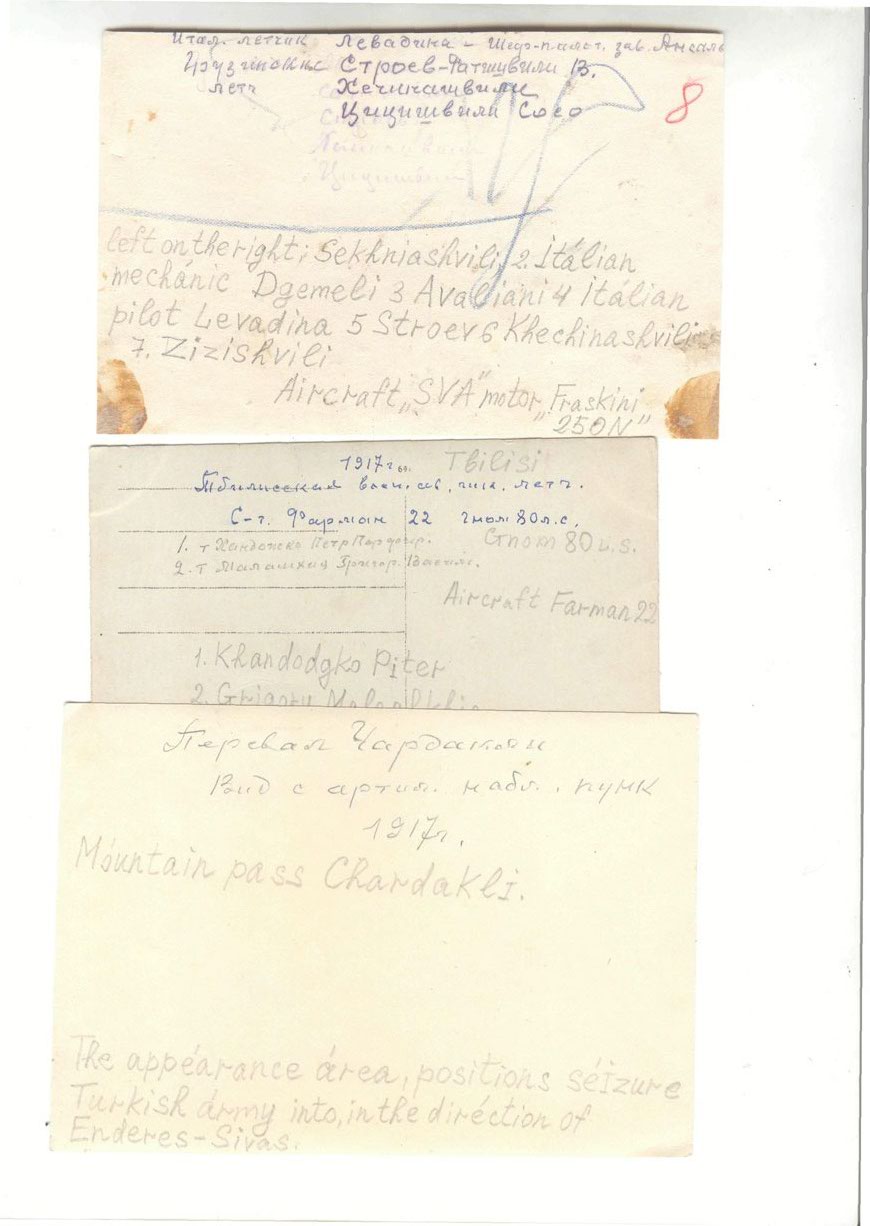 Итал. летчик Левадина – Шеф-пилот. зав. Ансаль
Грузинские Строев-Фатишвили В.
летч Хечинашвили
Цицишвили Сосо
8
left on the right; Sekhniashvili, 2. Itálian
mechánic Dgemeli 3 Avaliani 4 Itálian
pilot Levadina 5 Stroev 6 Khechinashvili
7. Zizishvili
Aircraft „SVA" motor „Fraskini
250N"
1917г. Tbilisi
Тбилисская воен. ав. летч.
С-т. Фарман 22 гном 80 л.с.
1. т Хандожко Петр
Gnom 80 л.s.
2. т Малашхия Григор. Васил.
Aircraft Farman 22
1. Khandodgko Piter
2. Grigory
Перевал Чардаклы
Вид с артил. набл. пунк
1917г.
Móuntain pass Chardakli.
The appéarance área, positions séizure
Turkish ármy into, in the diréction of
Enderes-Sivas.